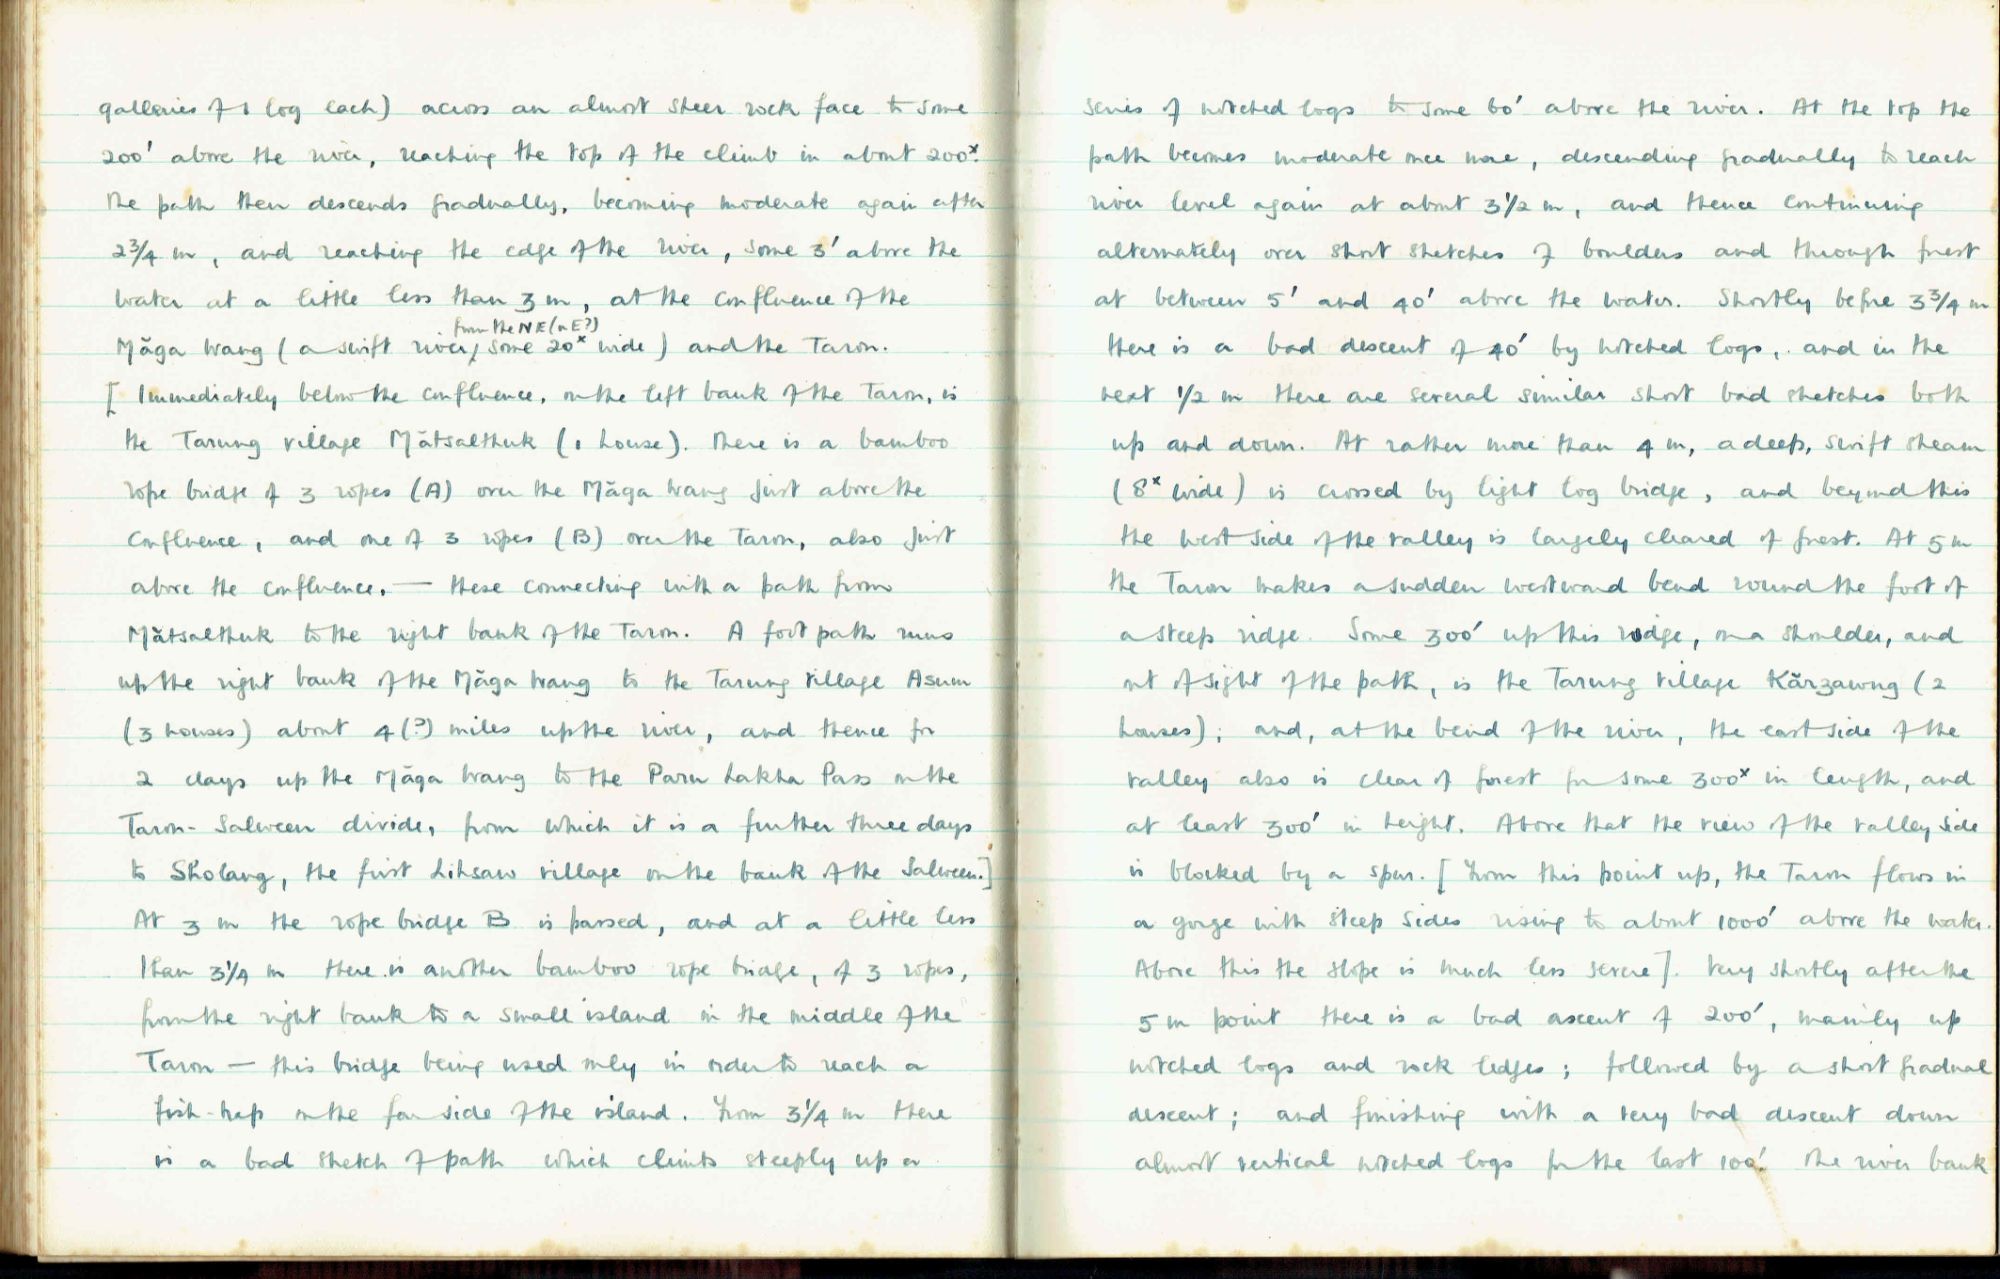 galleries of 1 log each) across an almost sheer rock face to some
200' above the river, reaching the top of the climb in about 200ˣ.
The path then descends gradually, becoming moderate again after
2¾ m, and reaching the edge of the river, some 3' above the
water at a little less than 3 m, at the confluence of the
from the NE (or E?)
Măga Wang (a swift river, some 20ˣ wide) and the Taron.
[Immediately below the confluence, on the left bank of the Taron, is
the Tarung village Mătsalthuk (1 house). There is a bamboo
rope bridge of 3 ropes (A) over the Măga Wang just above the
confluence, and one of 3 ropes (B) over the Taron, also just
above the confluence, — these connecting with a path from
Mătsalthuk to the right bank of the Taron. A foot path runs
up the right bank of the Măga Wang to the Tarung village Asum
(3 houses) about 4(?) miles up the river, and thence for
2 days up the Măga Wang to the Paru Lakha Pass on the
Taron-Salween divide, from which it is a further three days
to Sholang, the first Lihsaw village on the bank of the Salween.]
At 3 m the rope bridge B is passed, and at a little less
than 3¼ m there is another bamboo rope bridge, of 3 ropes,
from the right bank to a small island in the middle of the
Taron — this bridge being used only in order to reach a
fish-trap on the far side of the island. From 3¼ m there
is a bad stretch of path which climbs steeply up a
series of notched logs to some 60' above the river. At the top the
path becomes moderate once more, descending gradually to reach
river level again at about 3½ m, and thence continuing
alternately over short stretches of boulders and through forest
at between 5' and 40' above the water. Shortly before 3¾ m
there is a bad descent of 40' by notched logs, and in the
next ½ m there are several similar short bad stretches both
up and down. At rather more than 4 m, a deep, swift stream
(8ˣ wide) is crossed by light log bridge, and beyond this
the west side of the valley is largely cleared of forest. At 5 m
the Taron makes a sudden westward bend round the foot of
a steep ridge. Some 300' up this ridge, on a shoulder, and
out of sight of the path, is the Tarung village Kărzawng (2
houses); and, at the bend of the river, the east side of the
valley also is clear of forest for some 300ˣ in length, and
at least 300' in height. Above that the view of the valley side
is blocked by a spur. [From this point up, the Taron flows in
a gorge with steep sides rising to about 1000' above the water.
Above this the slope is much less severe]. Very shortly after the
5 m point there is a bad ascent of 200', mainly up
notched logs and rock ledges; followed by a short gradual
descent; and finishing with a very bad descent down
almost vertical notched logs for the last 100'. The river bank